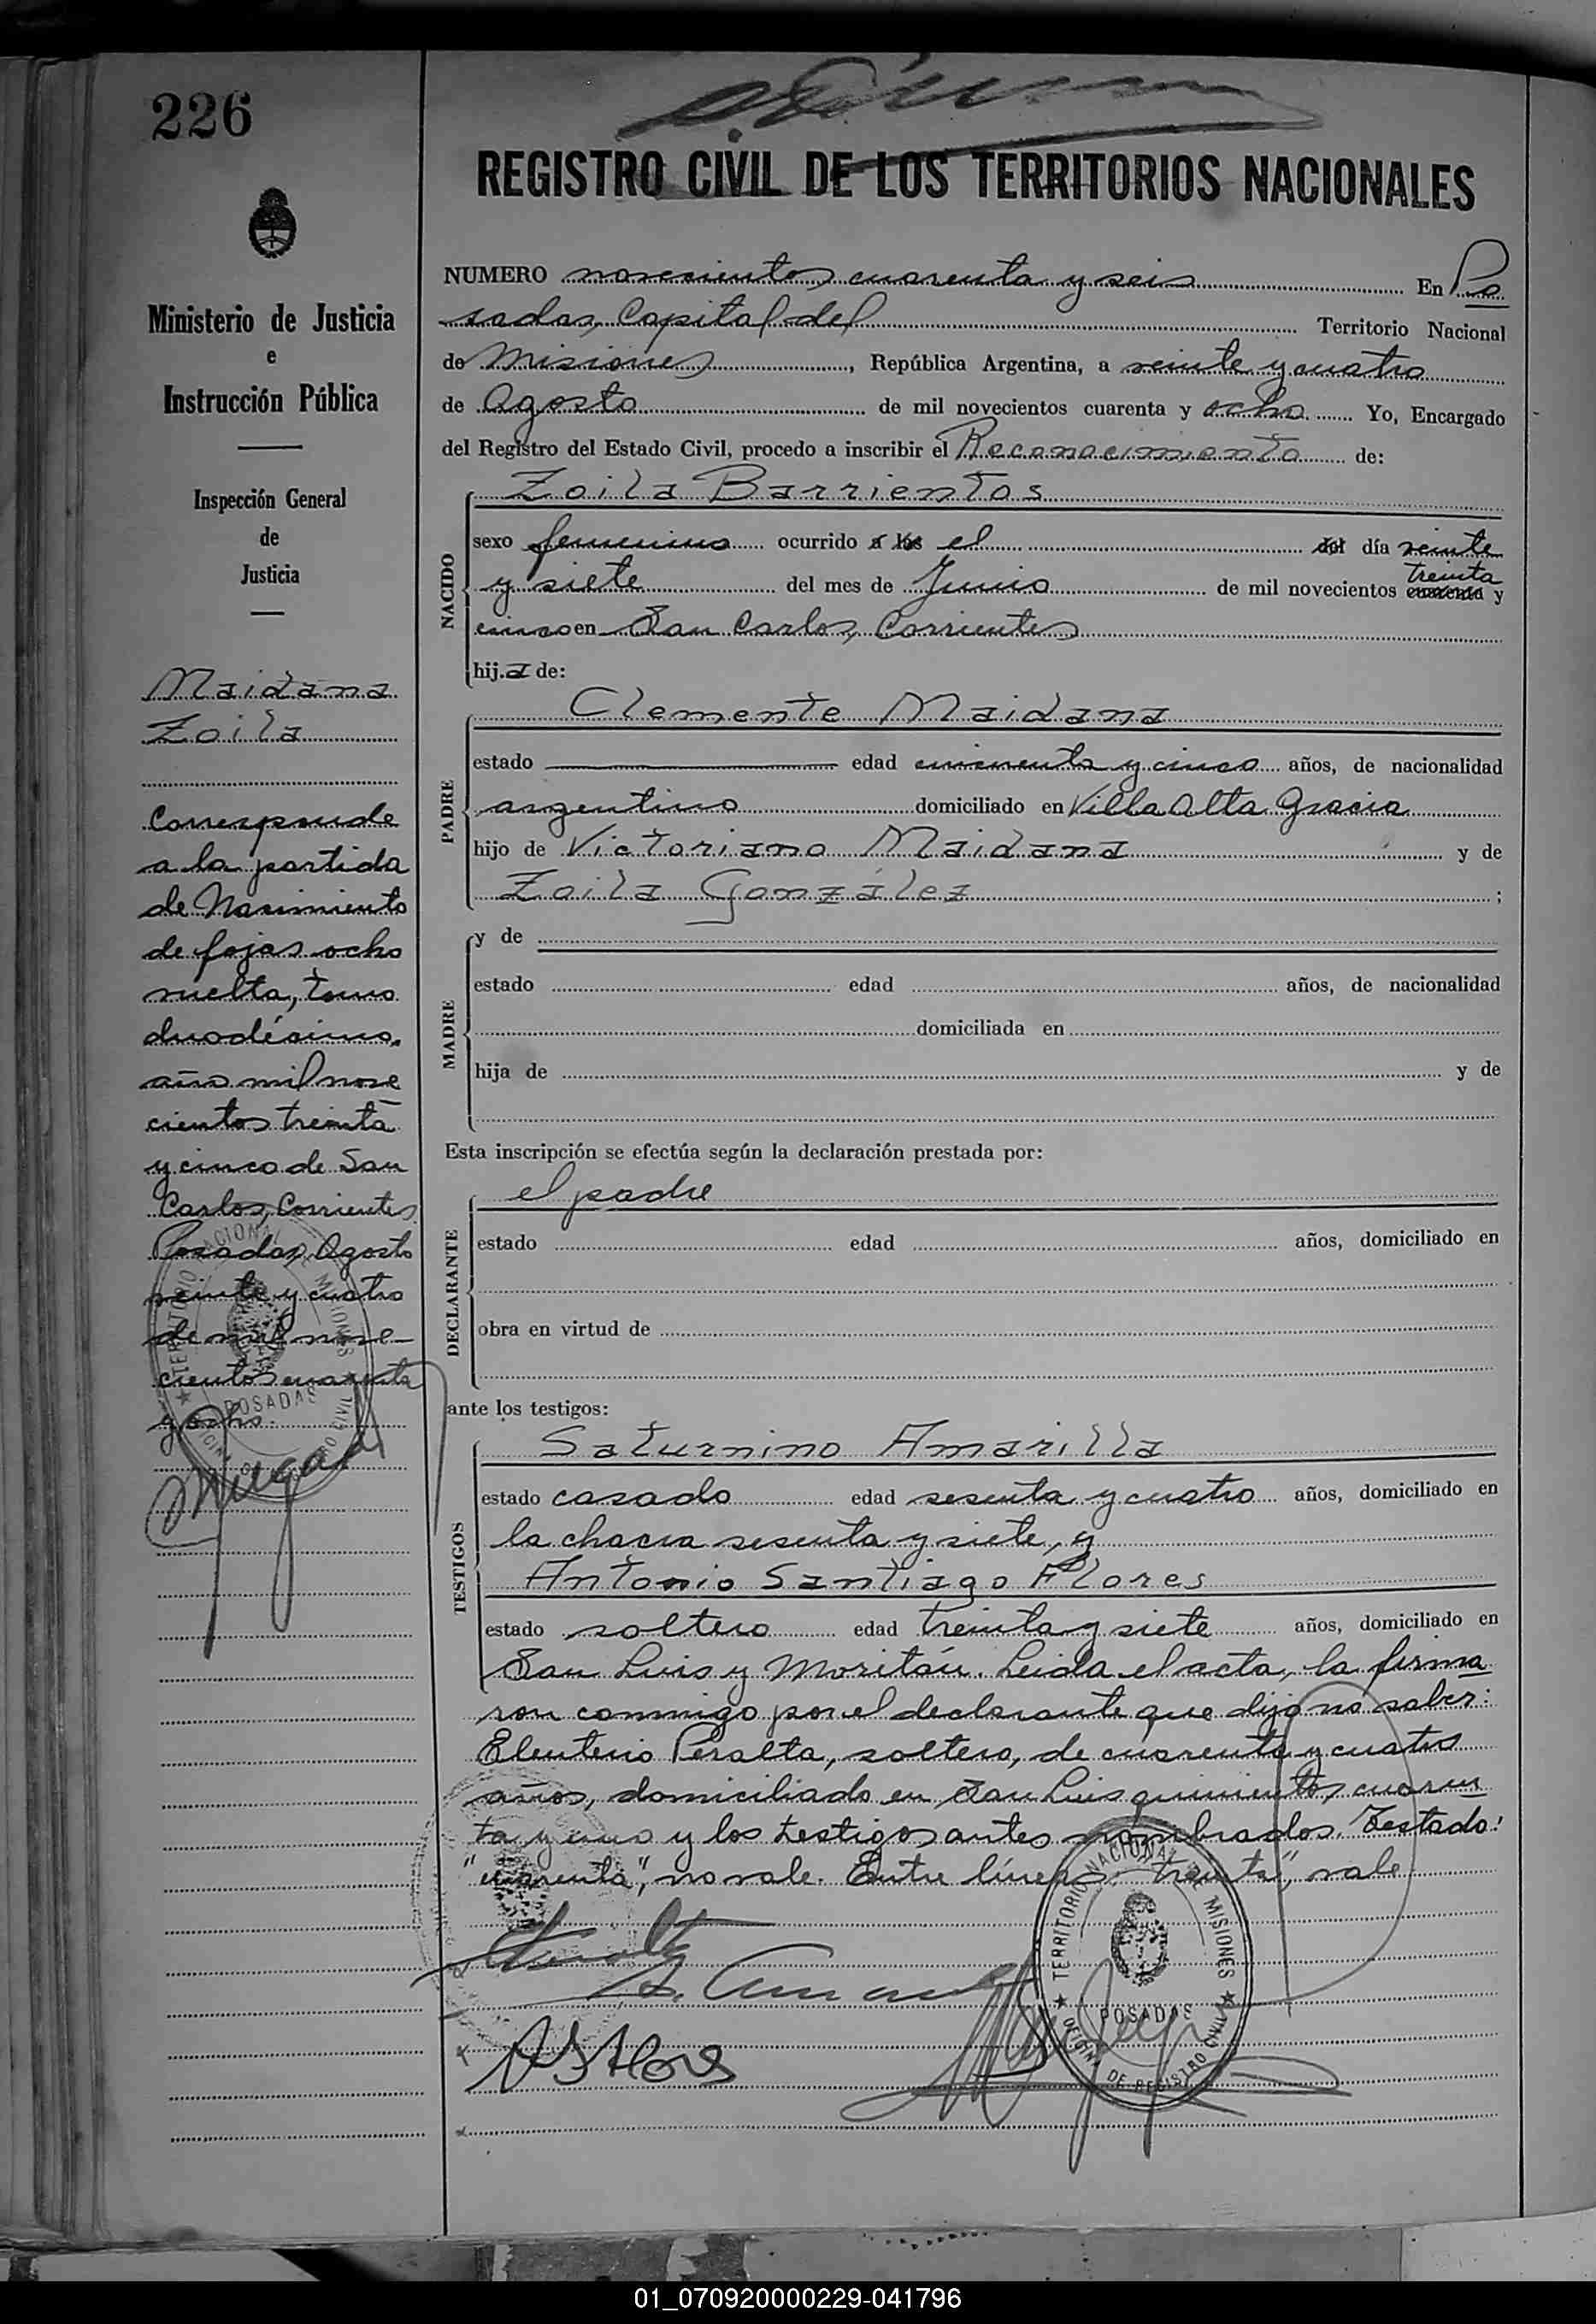 226
Ministerio de Justicia
e
Instrucción Pública
Inspección General
de
Justicia
Maidana
Zoila
Corresponde
a la partida
de Nacimiento
de fojas ocho
vuelta, tomo
duodécimo,
año mil nove
cientos treinta
y cinco de San
Carlos, Corrientes
Posadas, Agosto
veinte y cuatro
de mil nove-
cientos cuarenta
y ocho.
REGISTRO CIVIL DE LOS TERRITORIOS NACIONALES
NUMERO novecientos cuarenta y seis En Po
sadas, Capital del Territorio Nacional
de Misiones, República Argentina, a veinte y cuatro
de Agosto de mil novecientos cuarenta y ocho Yo, Encargado
del Registro del Estado Civil, procedo a inscribir el Reconocimiento de:
NACIDO
Zoila Barrientos
sexo femenino ocurrido a las el del día veinte
treinta
y siete del mes de Junio de mil novecientos cuarenta y
cinco en San Carlos, Corrientes
hij.a de:
PADRE
Clemente Maidana
estado edad cincuenta y cinco años, de nacionalidad
argentino domiciliado en Villa Alta Gracia
hijo de Victoriano Maidana y de
Zoila González ;
MADRE
y de
estado edad años, de nacionalidad
domiciliada en
hija de y de
Esta inscripción se efectúa según la declaración prestada por:
DECLARANTE
el padre
estado edad años, domiciliado en
obra en virtud de
ante los testigos:
TESTIGOS
Saturnino Amarilla
estado casado edad sesenta y cuatro años, domiciliado en
la chacra sesenta y siete, y
Antonio Santiago Flores
estado soltero edad treinta y siete años, domiciliado en
San Luis y Moritán. Leida el acta, la firma
ron conmigo por el declarante que dijo no saber:
Eleuterio Peralta, soltero, de cuarenta y cuatro
años, domiciliado en San Luis quinientos cuaren
ta y uno y los testigos antes nombrados. Testado:
"cuarenta", no vale. Entre líneas: "treinta", vale
A S Flores
TERRITORIO NACIONAL DE MISIONES
POSADAS
OFICINA DE REGISTRO CIVIL
01_070920000229-041796